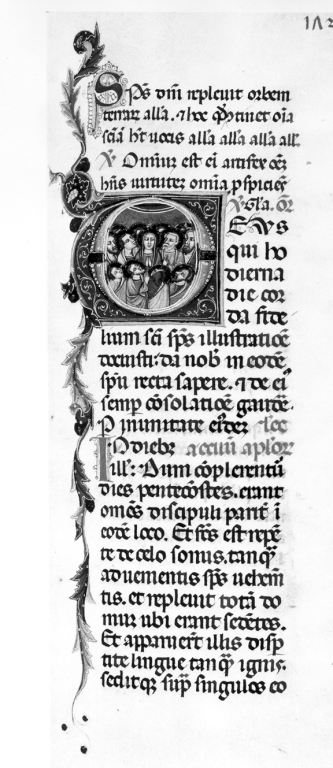 Sp̄s dn̄i repleuit orbem
terrar̄ alla. ⁊ hoc qđ ↄtinet oīa
scīā h̄t uocis alla alla alla all̄.
℣ Omniū est eī artifex oēm
hn̄s uirtutem omīa ꝓspiciēs
℣ Gl̄a. Or̄
Eus
qui ho
dierna
die cor
da fide
lium sc̄i sp̄s illustratiōe
docuisti: da nob̄ in eodē
spū recta sapere. ⁊ de eiꝰ
semp̄ cōsolatiōe gaudē.
P in unitate eiusdeꝫ
In diebꝫ actuū aplor̄
ill̄: Dum cōplerentur̄
dies pentecostes. erant
om̄es discipuli parit̄ ī
eodē loco. Et fcs̄ est repē
te de celo sonus. tanqͣꝫ
aduenientis sp̄s uehem̄
tis. et repleuit totā do
mum ubi erant sedētes.
Et apparuer̄t illis disp̄
tite lingue tanqͣꝫ ignis.
seditqꝫ suꝑ singulos eo